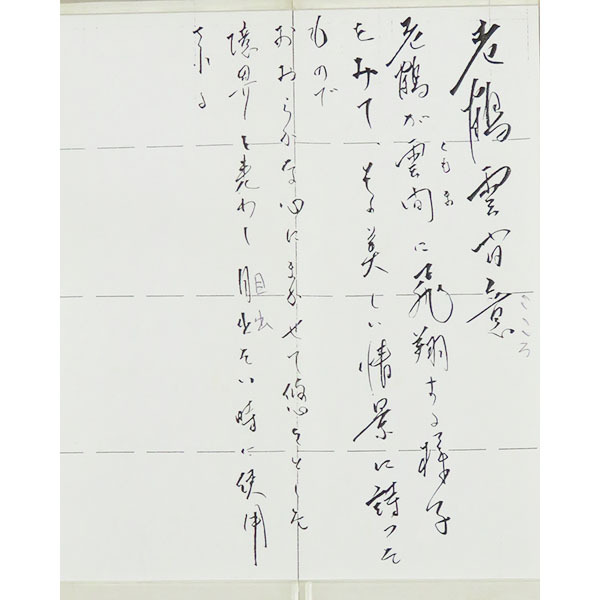 老鶴雲間意
こころ
老鶴が雲間に飛翔する様子
くもま
をみて、その美しい情景に詩った
もので
おおらかな心にまかせて悠々とした
境界を表わし目出たい時に使用
目出
される